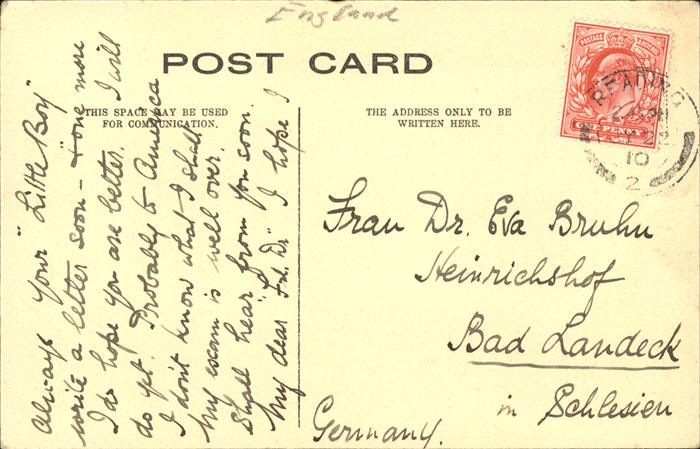 England
POST CARD
THIS SPACE MAY BE USED
FOR COMMUNICATION.
THE ADDRESS ONLY TO BE
WRITTEN HERE.
My dear "Frl. Dr" I hope I
shall hear from you soon.
My exam is well over.
I don't know what I shall
do yet. Probably to America
I do hope you are better. I will
write a letter soon – & one more
Always your "Little Boy"
Frau Dr. Eva Bruhn
Heinrichshof
Bad Landeck
in Schlesien
Germany.
POSTAGE REVENUE
ONE PENNY
READING
10
2